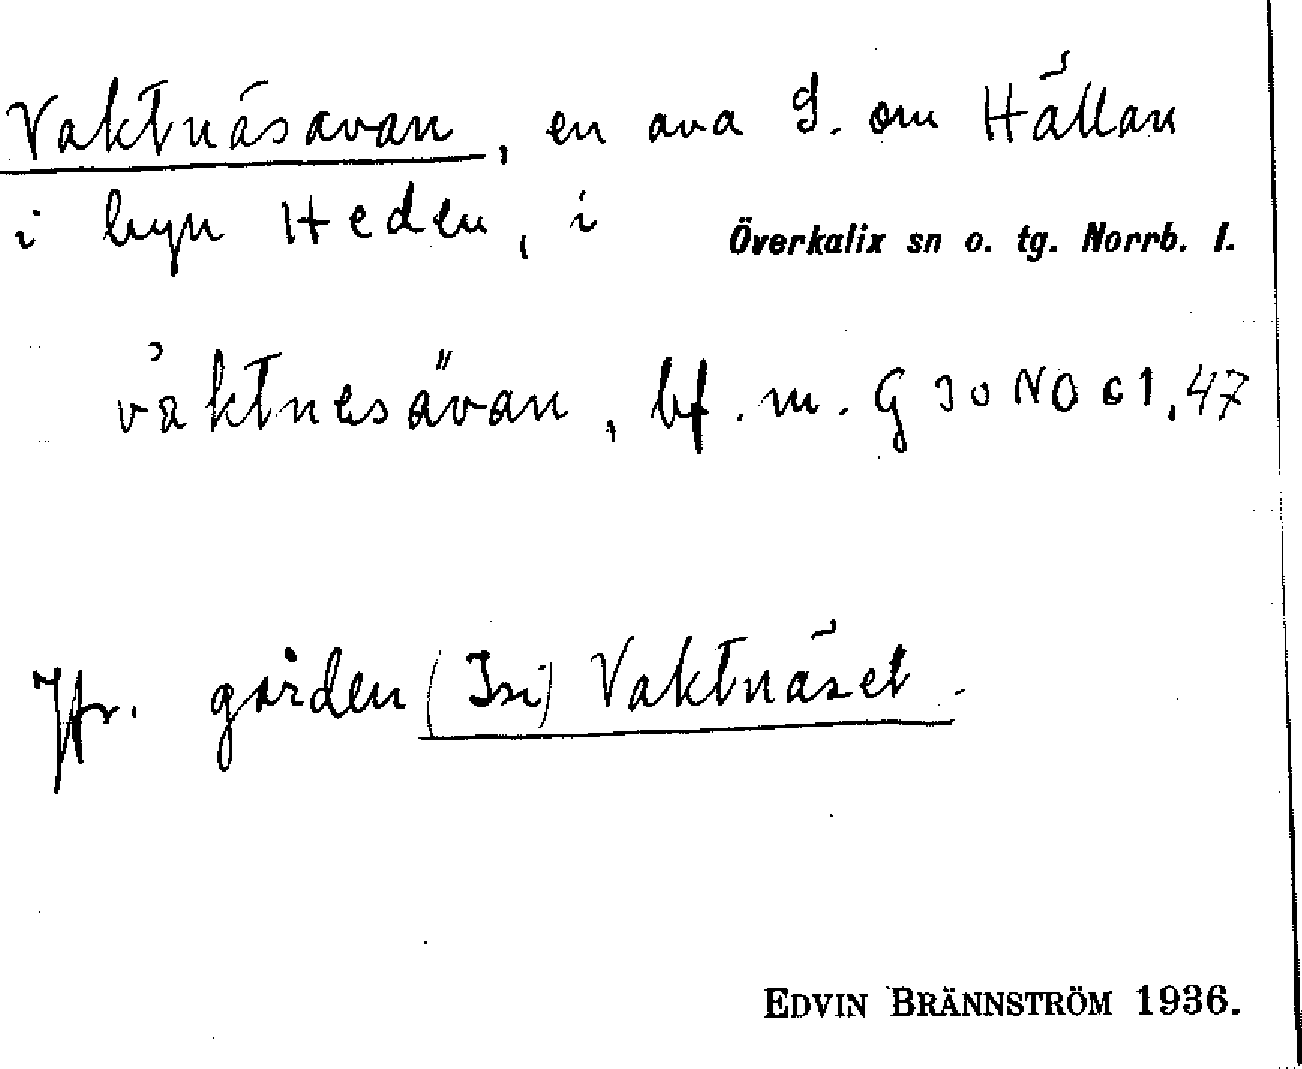 Vaktnäsavan, en ava S. om Hällan
i byn Heden, i Överkalix sn o. tg. Norrb. l.
vàktnesä̀van, bf. m. G 30 NO c 1,47
Jfr. gården (In i) Vaktnäset.
EDVIN BRÄNNSTRÖM 1936.